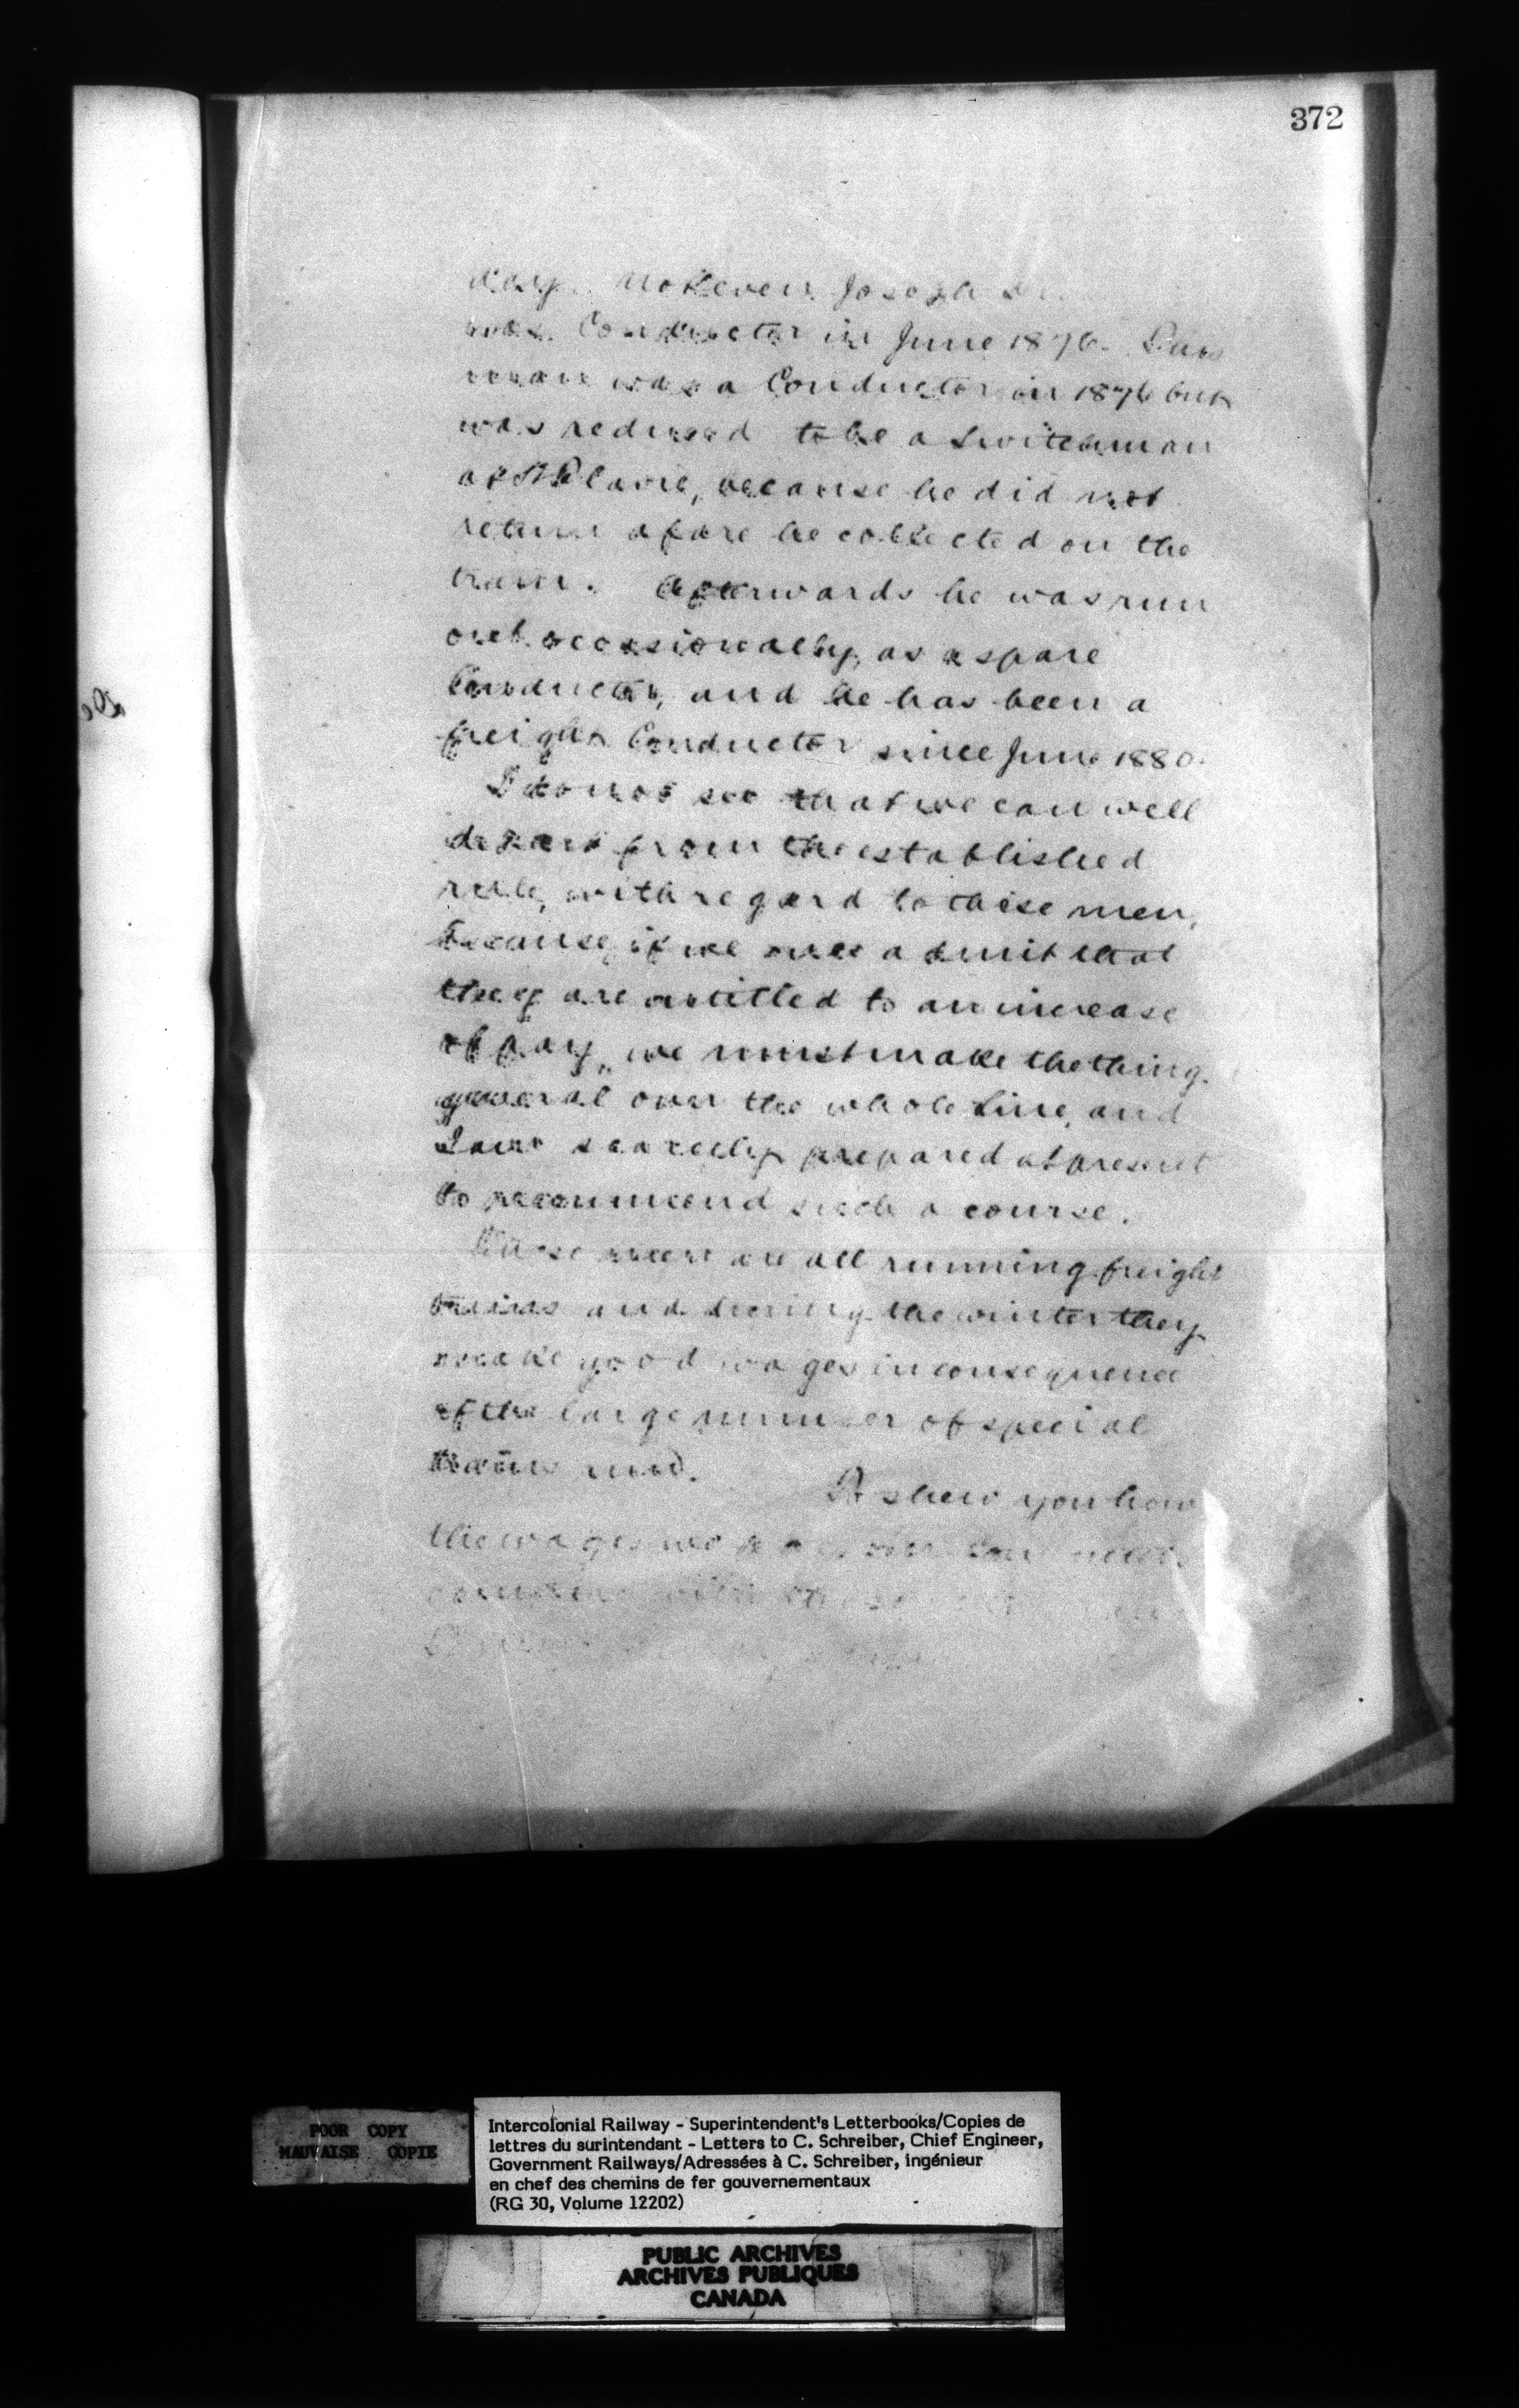 372
Joseph
was Conductor in June 1876.
man was a Conductor in 1876 but
was reduced to be a Switchman
at St Flavie, because he did not
return a fare he collected on the
train. Afterwards he was run
out occasionally, as a spare
Conductor, and he has been a
freight Conductor since June 1880.
I do not see that we can well
depart from the established
rule, with regard to these men,
because if we once admit that
they are entitled to an increase
of pay, we must make the thing
general over the whole line, and
I am scarcely prepared at present
to recommend such a course.
These men are all running freight
trains and during the winter they
make good wages in consequence
of the large number of special
trains run.
To shew you how
the wages we
POOR COPY
MAUVAISE COPIE
Intercolonial Railway - Superintendent's Letterbooks/Copies de
lettres du surintendant - Letters to C. Schreiber, Chief Engineer,
Government Railways/Adressées à C. Schreiber, ingénieur
en chef des chemins de fer gouvernementaux
(RG 30, Volume 12202)
PUBLIC ARCHIVES
ARCHIVES PUBLIQUES
CANADA